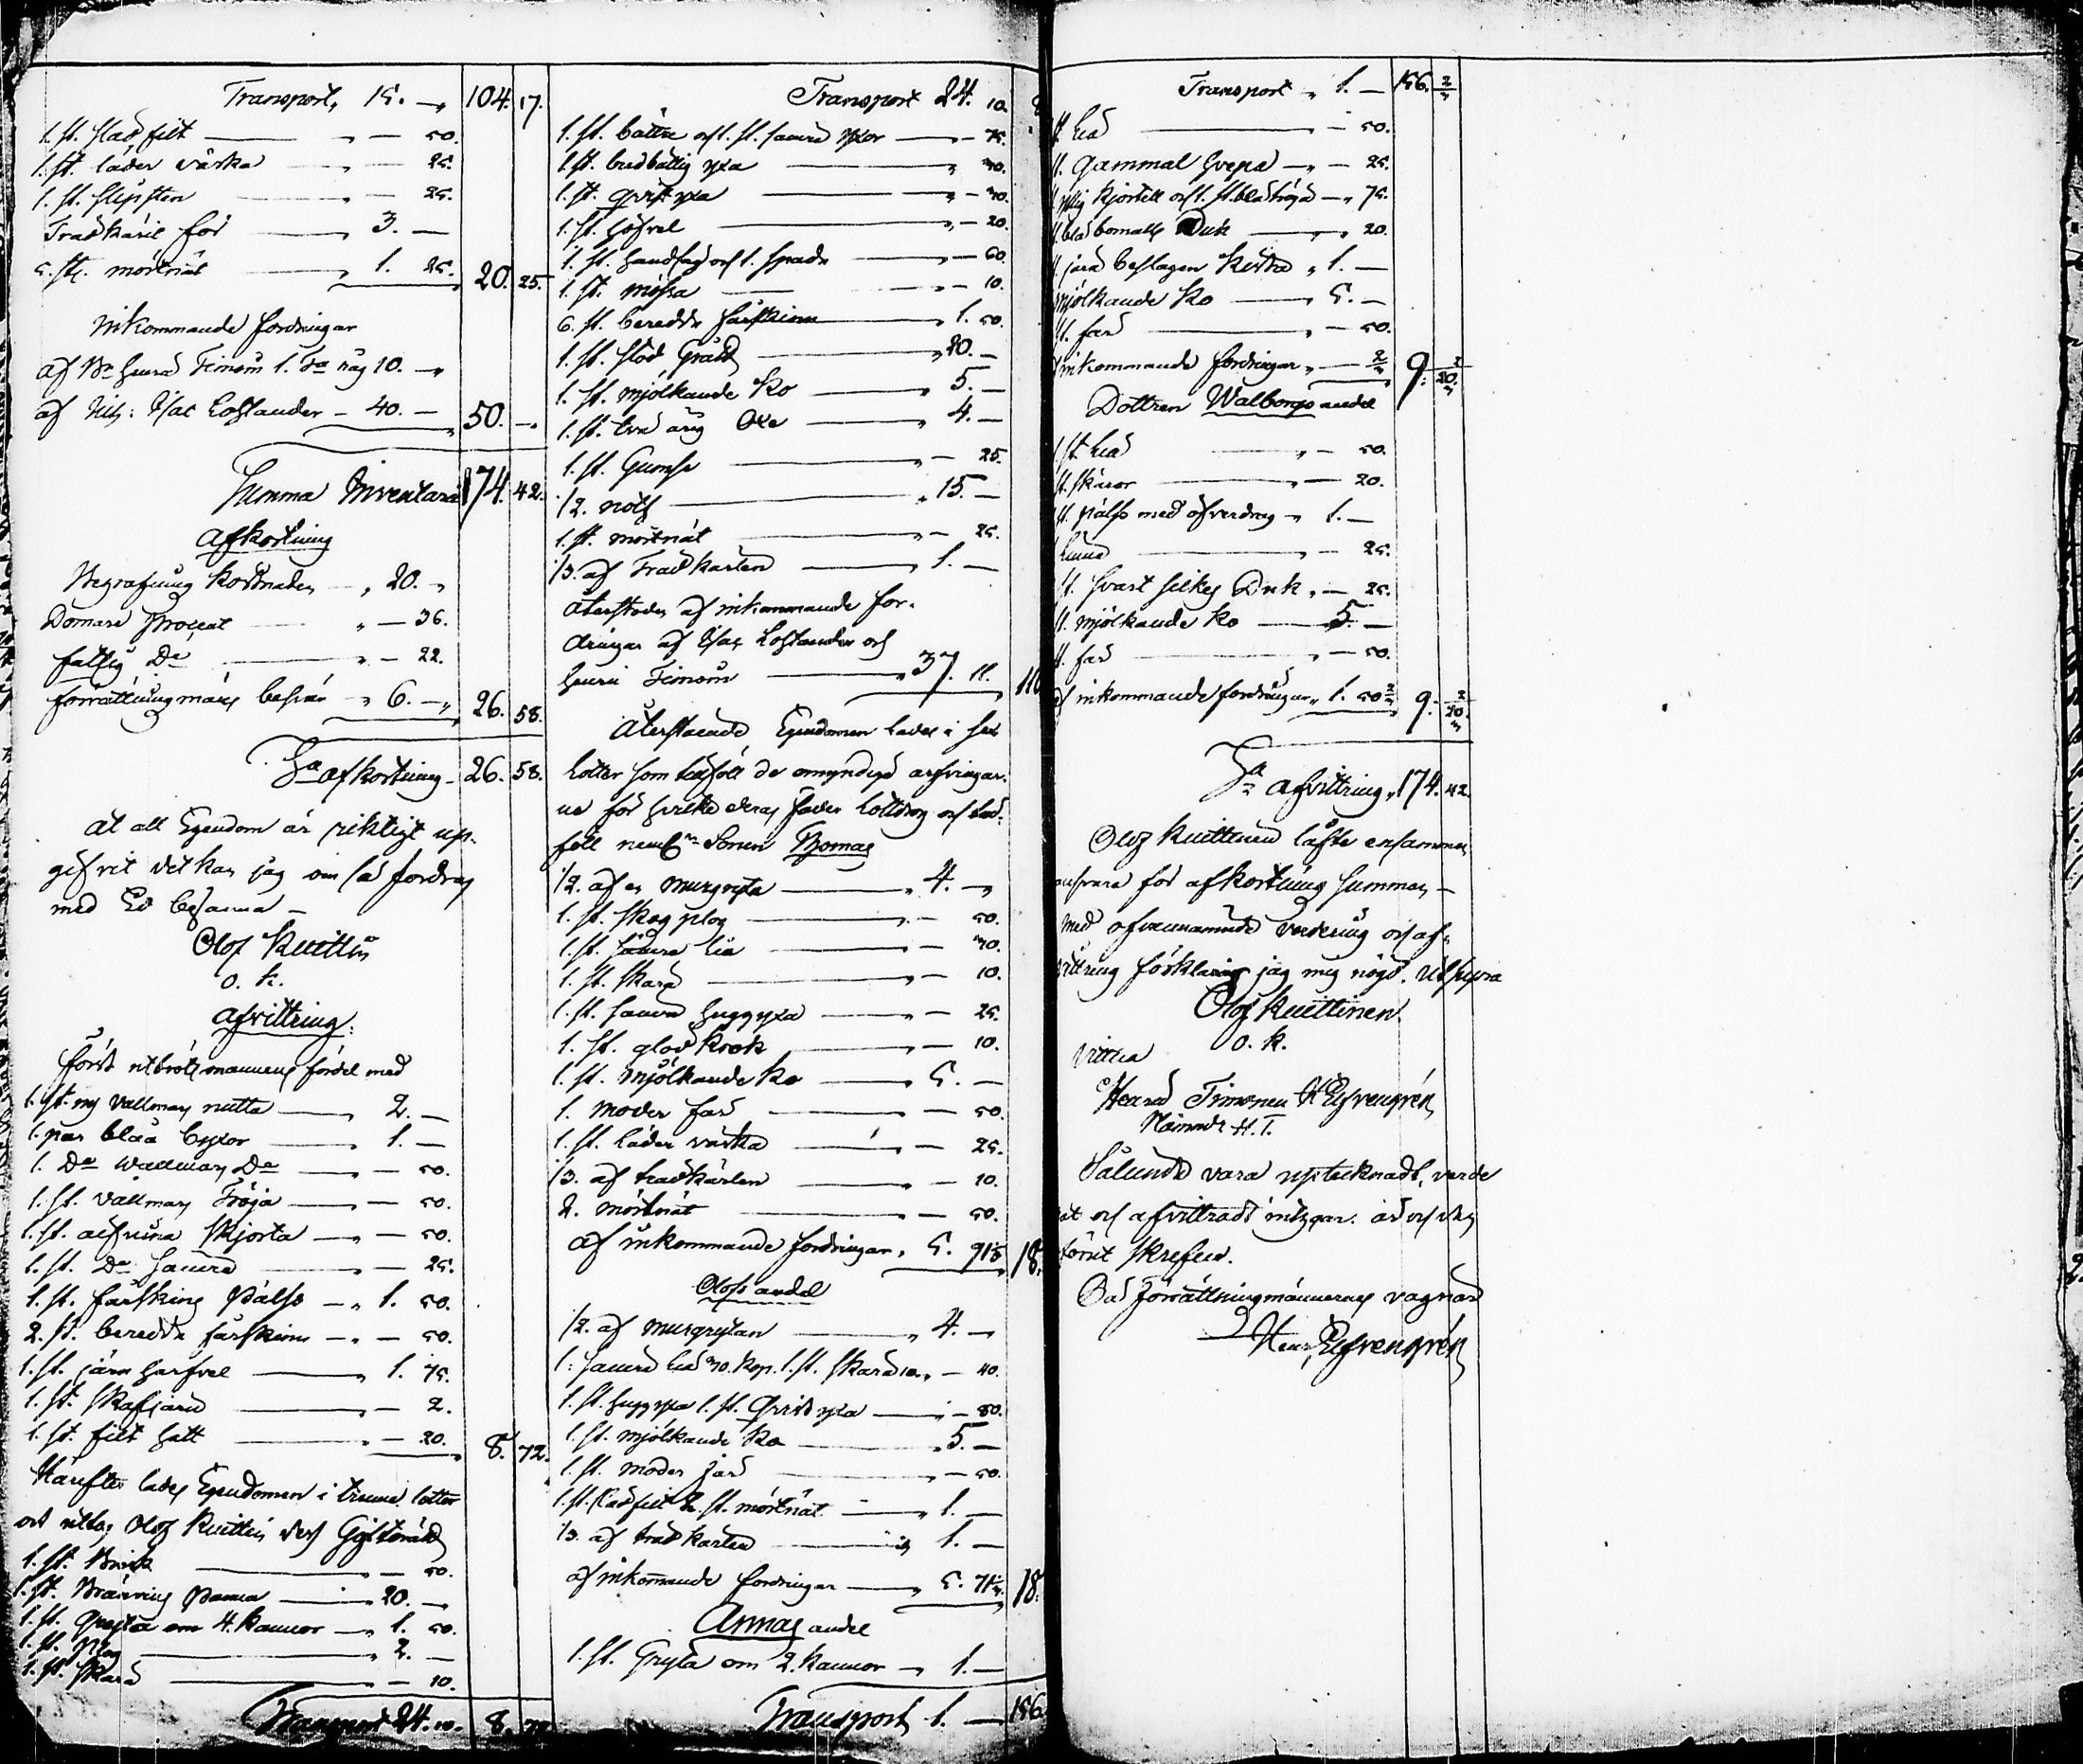 Transport, 15. — 104. 17.
1. st. slädfilt — 50.
1. st. läder väska — 25.
1. st. slipsten — 25.
Trädkäril för — 3. —
5. st. mörtnät — 1. 25. 20. 25.
Inkommande fordringar
af Henrd Timoin 10. —
af Isac Lostander — 40. — 50. —
Summa Inventarii 174. 42.
Afkortning
Begrafning kostnaden — 20. —
Domare Procent — 36.
fattig Do — 22.
förrättningmäns besvär — 6. — 26. 58.
Sa afkortning — 26. 58.
at all Egendom är riktigt up-
gifvit det kan jag om så fordras
med Ed besanna —
Olof Kuittin
O. K.
Afvittring:
Först utbröts mannens fördel med
1. st. ny vallmans nutta — 2. —
1. par blåa byxor — 1. —
1. Do wallmans Do — 50.
1. st. vallmans Tröja — 50.
1. st. skjorta — 50.
1. st. Do sämre — 25.
1. st. fårskins Päls — 1. 50.
2. st. beredda fårskinn — 50.
1. st. järn harfvel — 1. 75.
1. st. Skafjärn — 2.
1. st. filt hatt — 20. 8. 72.
Härefter lades Egendomen i trenne lotter
och uttog Olof Kuittin dess Giftorätt
1. st. — 50.
1. st. Brännvins Panna — 20. —
1. st. Gryta om 4. kannor — 1. 50.
1. st. Plog — 2. —
1. st. Skära — 10.
Transport 24. 10. 8. 72
Transport 24. 10.
1. st. bättre och 1. st. sämre yxor — 75.
1. st. bredbällig yxa — 30.
1. st. qvist yxa — 30.
1. st. höfvel — 20.
1. st. handsåg och 1. spade — 60.
1. st. mössa — 10.
6. st. beredda fårskinn — 1. 50.
1. st. stod — 20. —
1. st. mjölkande Ko — 5. —
1. st. två årig Oxe — 4. —
1. st. Gumse — 25.
1/2. not — 15. —
1. st. mörtnät — 25.
1/3. af Trädkärlen — 1. —
återstoden af inkommande for-
dringar af Isac Lostander och
Henri Timoin — 37. 11. 110
Återstående Egendomen lades i sex
Lotter som tillföll de omyndiga arfvingar-
ne för hvilka deras fader Lottdrog och till-
föll neml. Sonen Thomas
1/2. af en murgryta — 4. —
1. st. skog plog — 50.
1. st. sämre lia — 30.
1. st. skära — 10.
1. st. sämre huggyxa — 25.
1. st. glöd krok — 10.
1. st. mjölkande Ko — 5. —
1. moder får — 50.
1. st. läder väska — 25.
1/3. af trädkärlen — 10.
2. mörtnät — 50.
af inkommande fordringar, 5. 18.
Olofs andel
1/2. af murgrytan — 4. —
1. sämre lia 30. kop. 1. st. skära 10. — 40.
1. st. huggyxa 1. st. Qvist yxa — 80.
1. st. mjölkande Ko — 5. —
1. st. moder får — 50.
1. st. slädfilt 2. st. mörtnät — 1. —
1/3. af träd kärlen — 1. —
af inkommande fordringar — 5. 18.
Annas andel
1. st. Gryta om 2. kannor — 1. —
Transport 1. — 156
Transport 1. — 156.
st. lia — 50.
st. Gammal Svepa — 25.
kjortell och 1. st. blå tröja — 75.
st. blå bomulls Duk — 20.
st. järn beslagen kista — 1. —
mjölkande Ko — 5. —
st. får — 50.
inkommande fordringar, — 9.
Dottren Walborgs andel
1 st. lia — 50.
st. skäror — 20.
st. päls med öfverdrag — 1. —
— 25.
st. svart silkes Duk — 25.
st. mjölkande Ko — 5. —
st. får — 50.
af inkommande fordringar, 1. 50 9.
Sa afvittring, 174. 42.
Olof Kuittinen låfte ensammen
ansvara för afkortnings summan —
med ofvannämnde värdering och af-
vittring förklarar jag mig nögd.
Olof Kuittinen
O. K.
Vittna
Henrd Timonen H Elfvengrén
Nämnde H. T.
Sålunde vara uptecknadt, värde
rat och afvittradt intygar. år och dag
förut skrefven.
På Förrättningmännernes vägnar
Henr. Elfvengrén